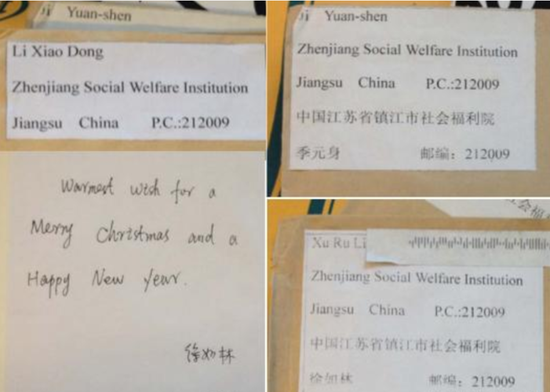 Yuan-shen
Li Xiao Dong
Zhenjiang Social Welfare Institution
Jiangsu China P.C.:212009
Warmest wish for a
Merry Christmas and a
Happy New Year.
徐如林
Yuan-shen
Zhenjiang Social Welfare Institution
Jiangsu China P.C.:212009
中国江苏省镇江市社会福利院
季元身 邮编：212009
会福
Xu Ru Li
Zhenjiang Social Welfare Institution
Jiangsu China P.C.:212009
中国江苏省镇江市社会福利院
徐如林 邮编：212009